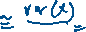 ≈ var(x) =